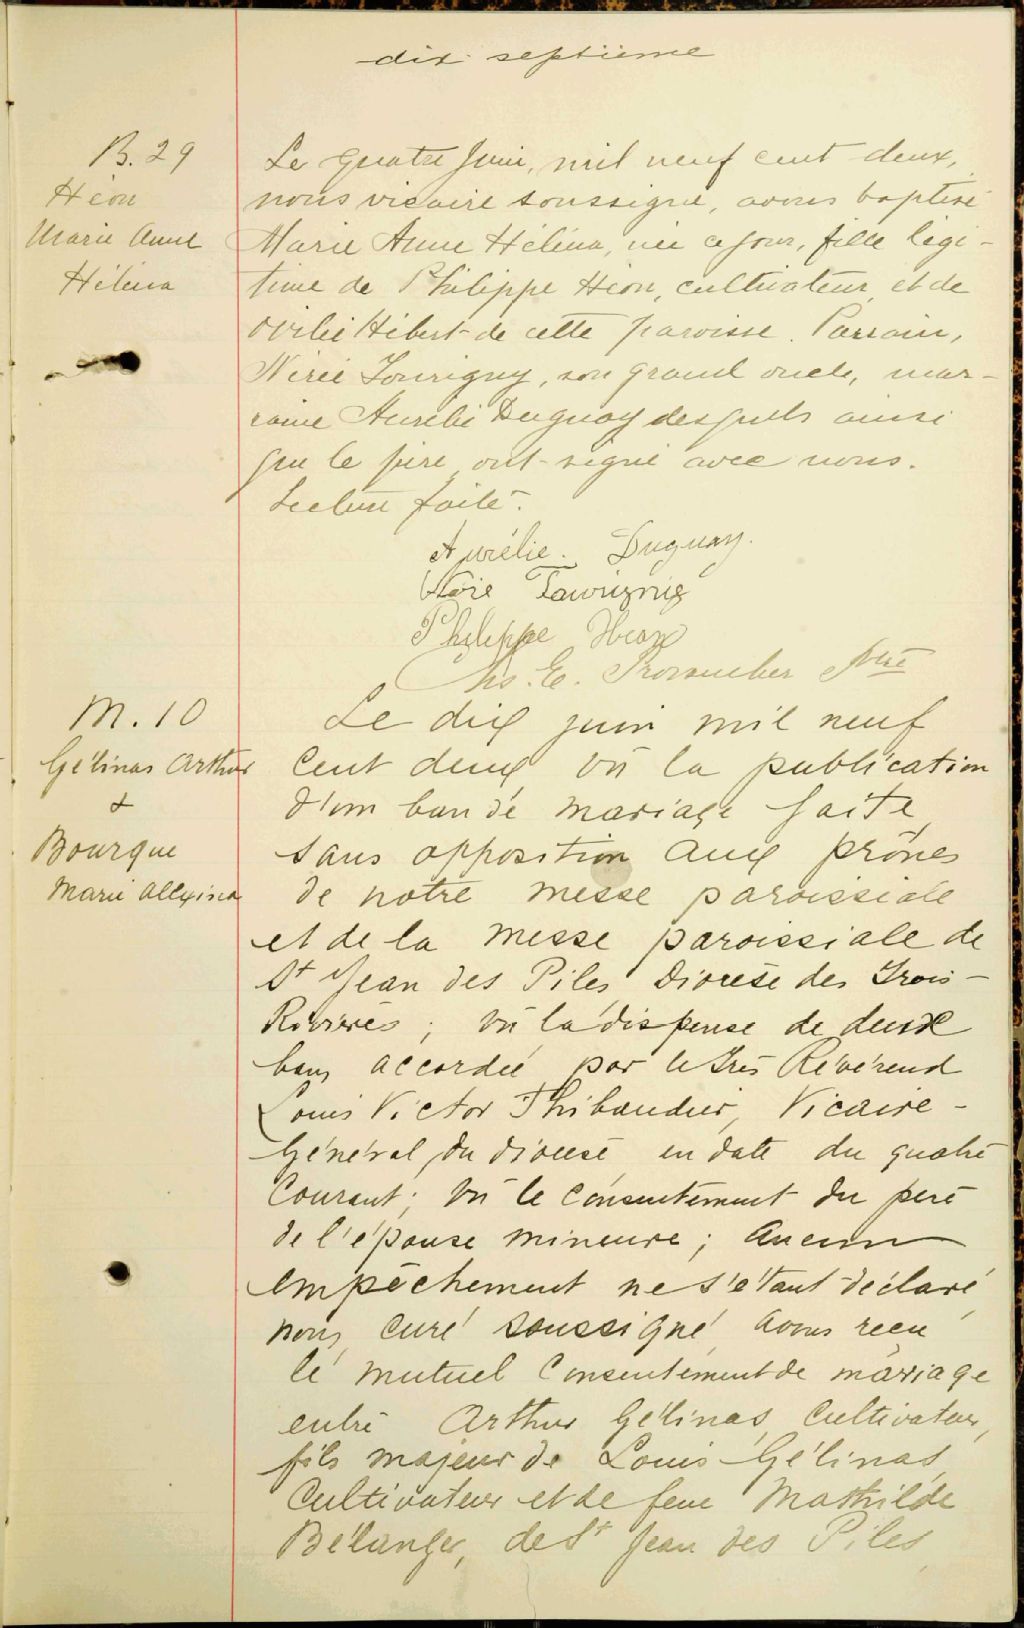 dix septième
B. 29
Héon
Marie Anne
Héléna
Le quatre Juin, mil neuf cent deux,
nous vicaire soussigné, avons baptisé
Marie Anne Héléna, née ce jour, fille légi-
time de Philippe Héon, cultivateur, et de
Ovilié Hébert de cette paroisse. Parrain,
Nérée Tourigny, son grand oncle, mar-
raine Aurélie Duguay desquels ainsi
que le père, ont signé avec nous.
Lecture faite.
Aurélie. Duguay.
Tourignig
Philippe Heon
Chs. E. Ptre
M. 10
Gélinas Arthur
&
Bourque
Marie Allexina
Le dix juin mil neuf
cent deux vû la publication
d'un ban de mariage faite
sans opposition aux prônes
de notre messe paroissiale
et de la messe paroissiale de
St Jean des Piles Diocèse des Trois-
Rivières ; vû la dispense de deux
bans accordée par le Très Révérend
Louis Victor Thibaudier, Vicaire-
Général du diocèse en date du quatre
Courant ; Vû le consentement du père
de l'épouse mineure ; Aucun
empêchement ne s'étant déclaré
nous, curé soussigné avons reçu
le mutuel Consentement de mariage
entre Arthur Gélinas, Cultivateur,
fils majeur de Louis Gélinas
Cultivateur et de feue Mathilde
Bélanger, de St Jean des Piles,